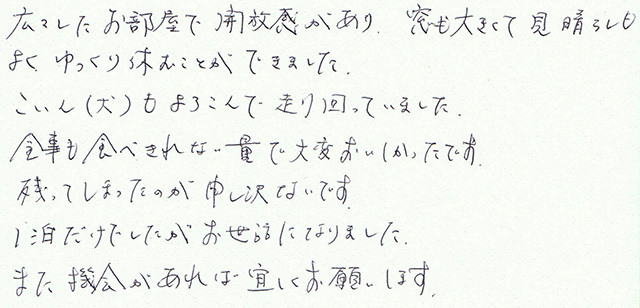 広々したお部屋で開放感があり、窓も大きくて見晴らしも
よく、ゆっくり休むことができました。
こいん(犬)もよろこんで走り回っていました。
食事も食べきれない量で大変おいしかったです。
残ってしまったのが申し訳ないです。
1泊だけでしたがお世話になりました。
また機会があれば宜しくお願いします。